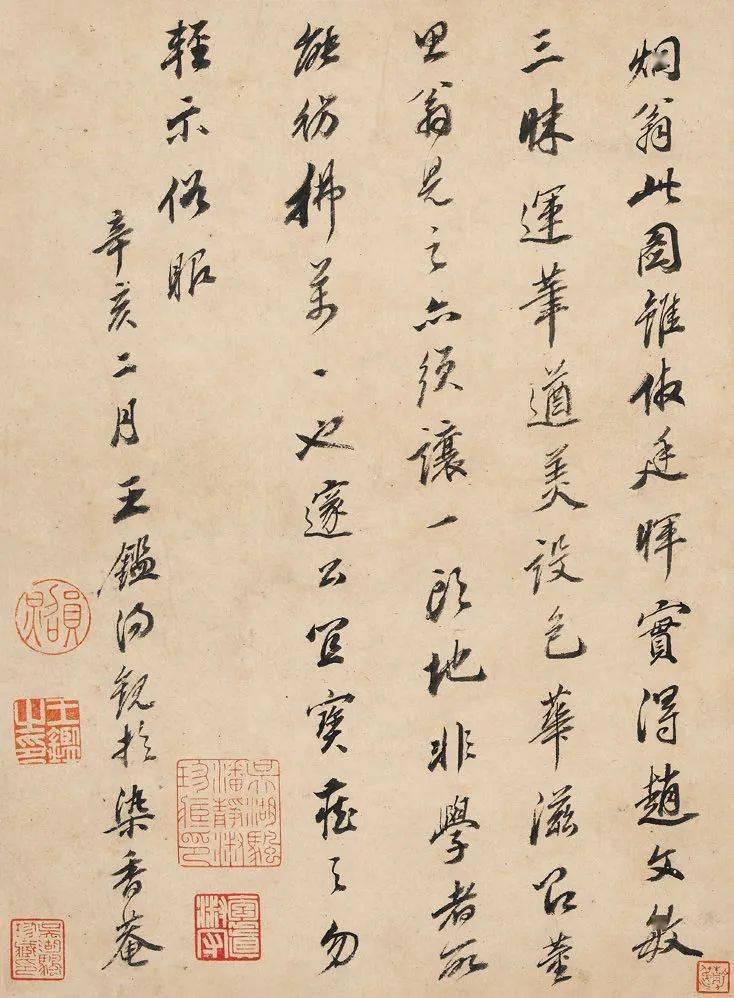 烟翁此圖雖倣廷暉實得趙文敏
三昧運筆遒美設色華滋即董
思翁見之亦須讓一頭地非學者所
能彷彿萬一也邃公宜寶藏之勿
輕示俗眼
辛亥二月王鑑得觀於染香菴
員照
王鑑之印
吳湖颿潘靜淑珍藏印
吳湖颿珍藏印